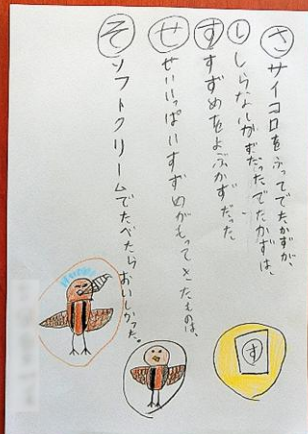 さ サイコロをふってでたかずが、
し しらないかずだったでたかずは、
す すずめをよぶかずだった。
せ せいいっぱいすずめがもってきたものは、
そ ソフトクリームでたべたらおいしかった。
す